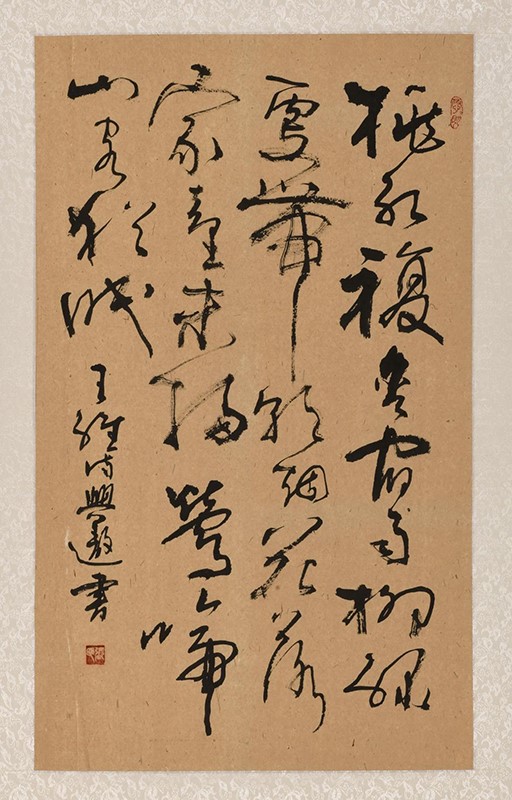 桃紅複含宿雨柳綠
更帶朝烟花落
家童未掃鶯啼
山客猶眠
王維詩興書